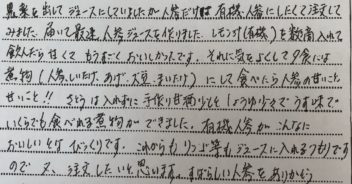 果菜を出して ジュースにしていましたが人参だけは有機人参にしたくて注文して
みました。届いて数達人参ジュースを作りました。レモン汁(有機)を数滴入れて
飲んだら甘くて もうすごくおいしかったです。それに気をよくして夕食には
煮物(人参、しいたけ、あげ、大豆、まいたけ)にして食べたら人参の甘いこと
せいこと!! さとうは入れずに手作り甘酒少々と しょうゆ少々で うす味で
いくらでも食べれる煮物ができました。有機人参がこんなに
おいしいとは びっくりです。これからも りんご等もジュースに入れるつもりです
ので 又、注文したいと思います。すばらしい人参をありがとう